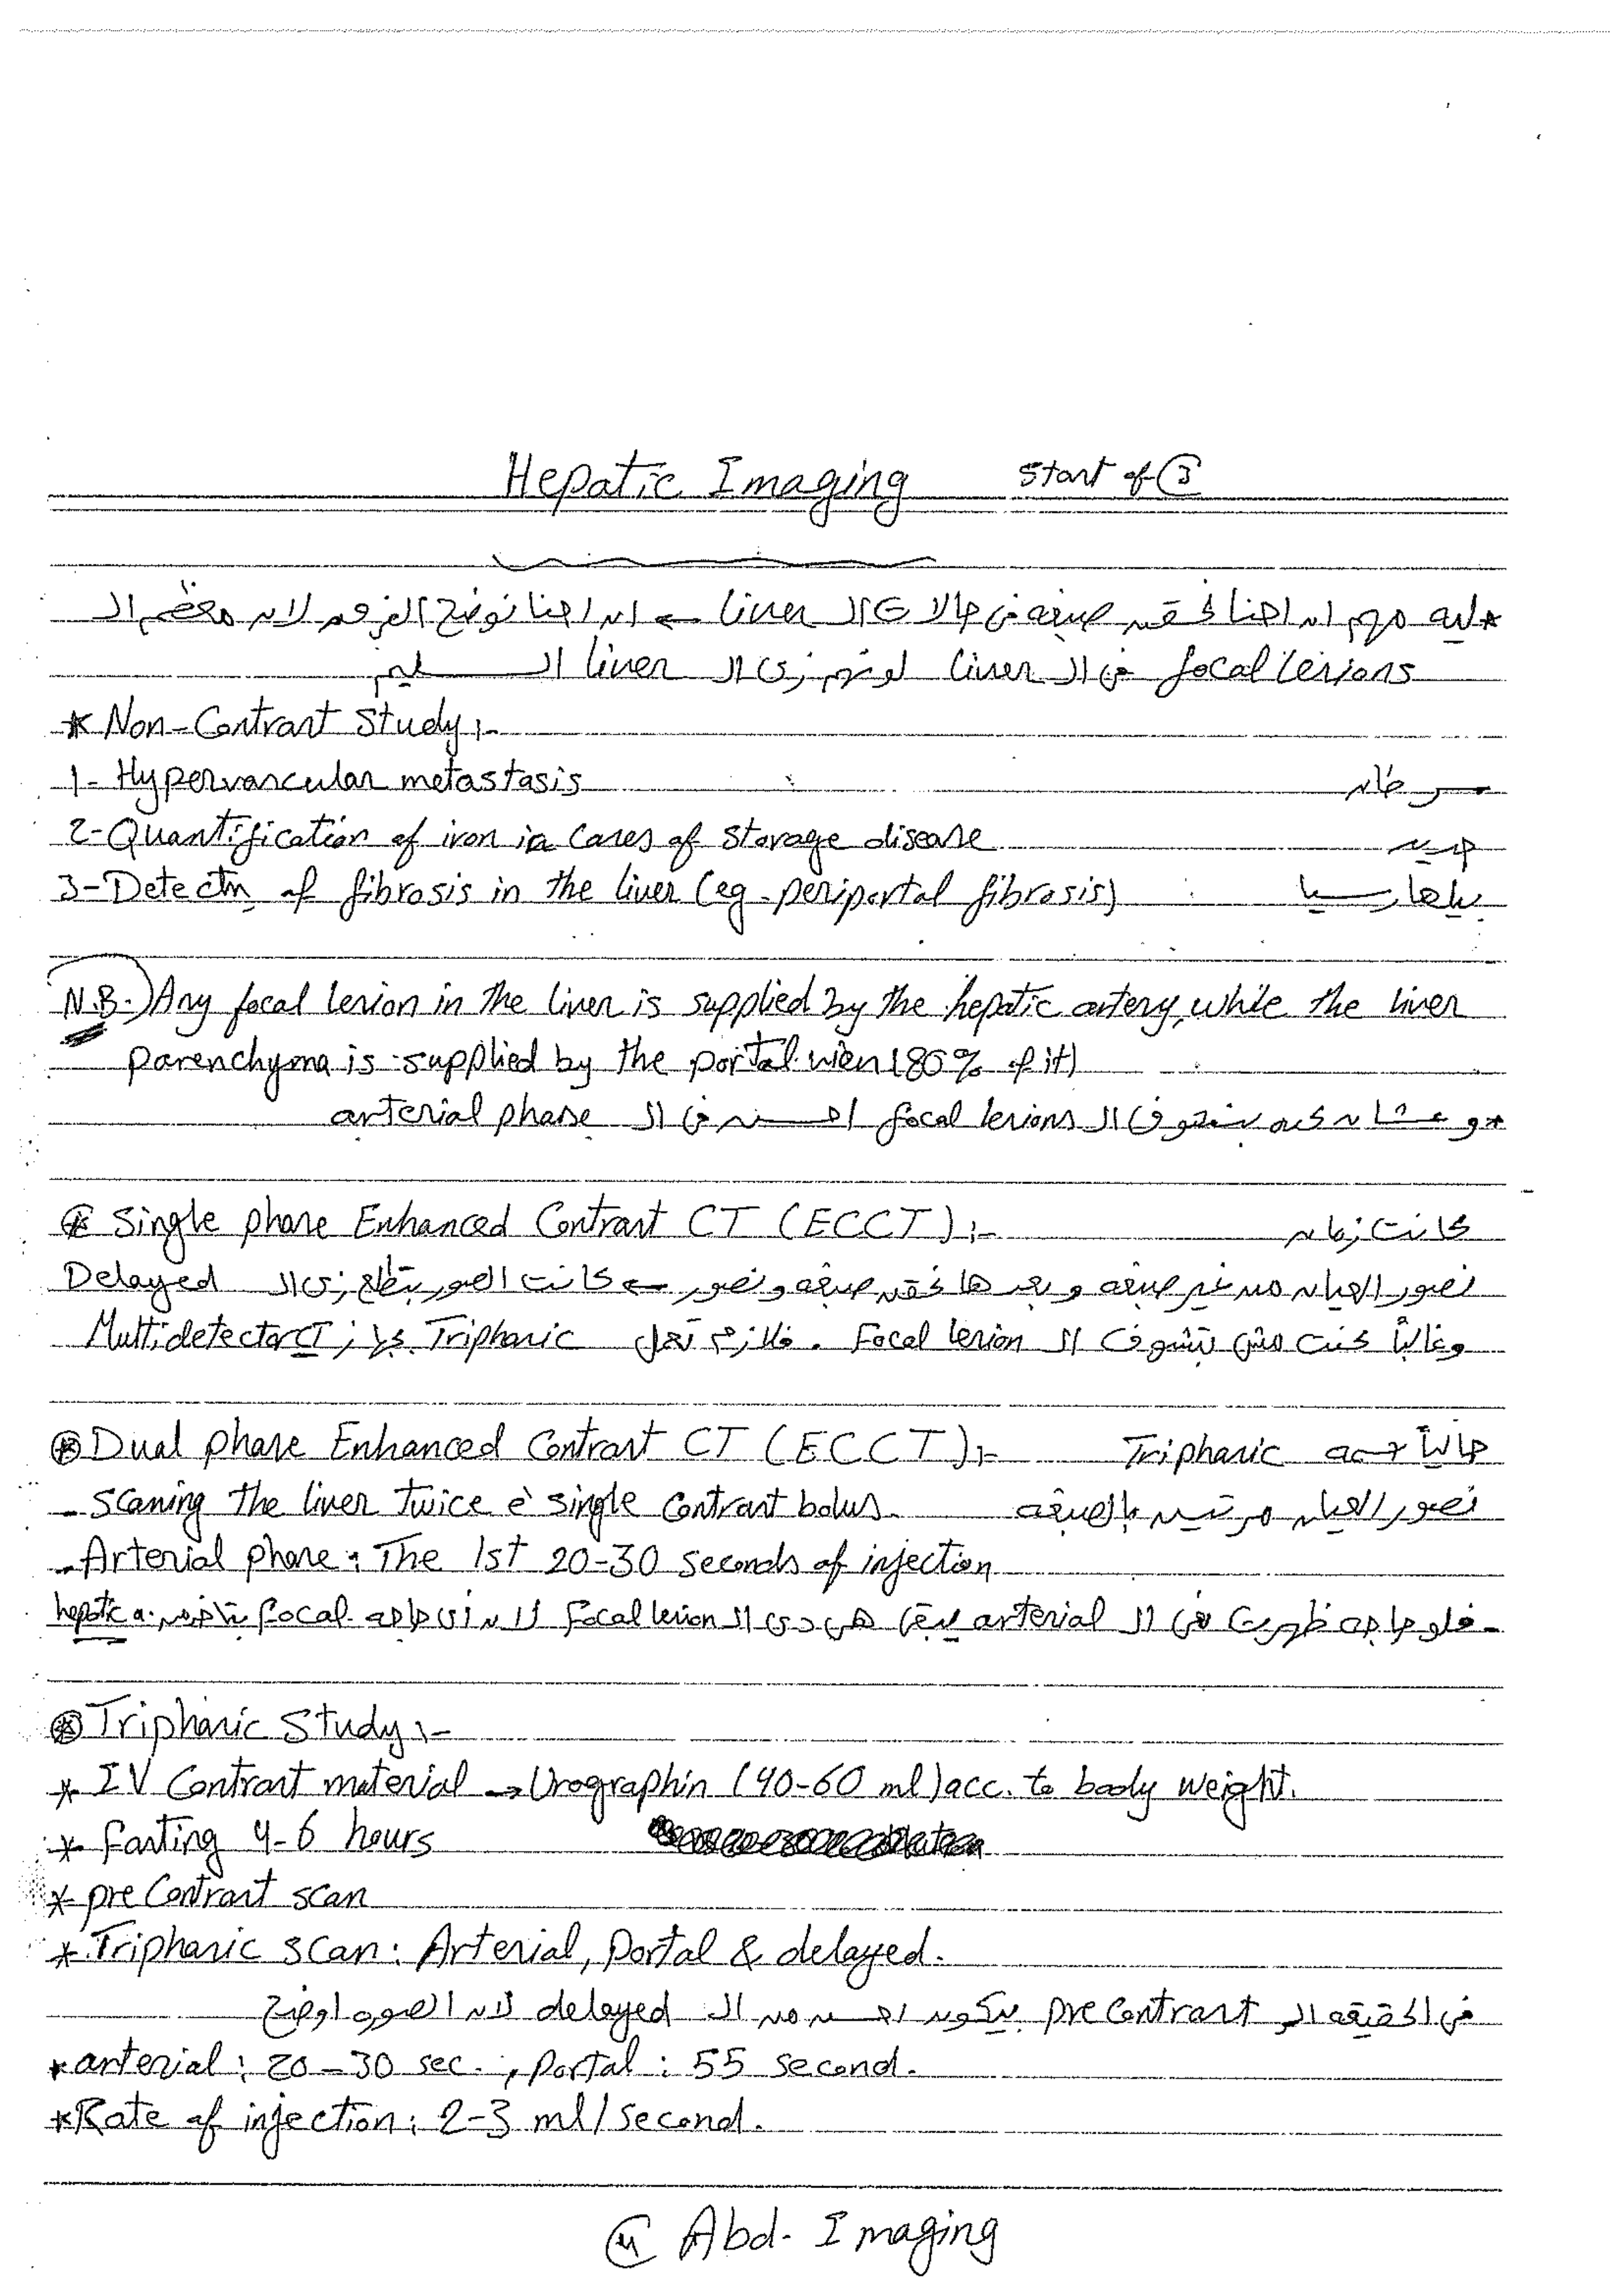 Hepatic Imaging start of ③
* ليه مهم ان احنا نحقن صبغه فى حالات ال liver ← ان احنا نوضح الفرق لان معظم ال
focal lesions فى ال liver لونهم زى ال liver السليم
* Non-Contrast Study:-
1- Hypervascular metastasis سرطان
2- Quantification of iron in cases of storage disease حديد
3- Detectn of fibrosis in the liver (eg. periportal fibrosis) بلهارسيا
N.B.) Any focal lesion in the liver is supplied by the hepatic artery, while the liver
parenchyma is supplied by the portal vien (80% of it)
* و عشان كده بنشوف ال focal lesions احسن فى ال arterial phase
⊛ Single phase Enhanced Contrast CT (ECCT):- كانت زمان
نصور العيان من غير صبغه و بعدها نحقن صبغه و نصور ← كانت الصور بتطلع زى ال Delayed
وغالباً كنت مش بتشوف ال Focal lesion . فلازم تعمل Triphasic بجهاز Multidetector CT
⊛ Dual phase Enhanced Contrast CT (ECCT):- حالياً اسمه Triphasic
- Scaning the liver twice è single contrast bolus. نصور العيان مرتين بالصبغه
- Arterial phase: The 1st 20-30 seconds of injection
- فلو حاجه ظهرت فى ال arterial يبقى هى دى ال focal lesion لان اى حاجه focal بتاخد من hepatic a.
⊛ Triphasic Study:-
* IV Contrast material → Urographin (40-60 ml) acc. to body weight.
* fasting 4-6 hours
* pre Contrast scan
* Triphasic scan: Arterial, Portal & delayed.
فى الحقيقه ال pre contrast بيكون احسن من ال delayed لان الصوره اوضح
* arterial: 20-30 sec. , Portal: 55 second.
* Rate of injection: 2-3 ml/second.
Abd- Imaging